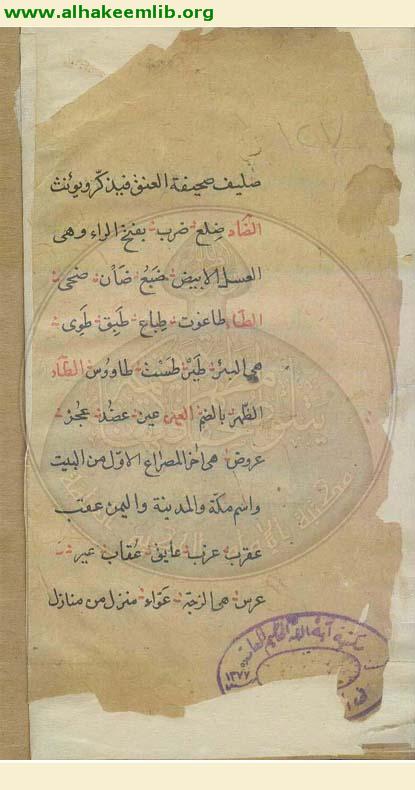 www.alhakeemlib.org
صليف صحيفة العنق فيذكر ويؤنث
الضاد ضلع ضرب بفتح الراء وهى
العسل الابيض ضبع ضأن ضحى
الطاء طاعوت طباع طبق طوى
هى البئر طير طست طاووس الظاء
الظهر بالضم العين عين عضد عجز
عروض هى آخر المصراع الاول من البيت
واسم مكة والمدينة واليمن عقب
عقرب عرب عاتق عقاب عير
عرس هى الزيّة عوّاء منزل من منازل
مكتبة آية الله الحكيم العامة
١٣٧٧